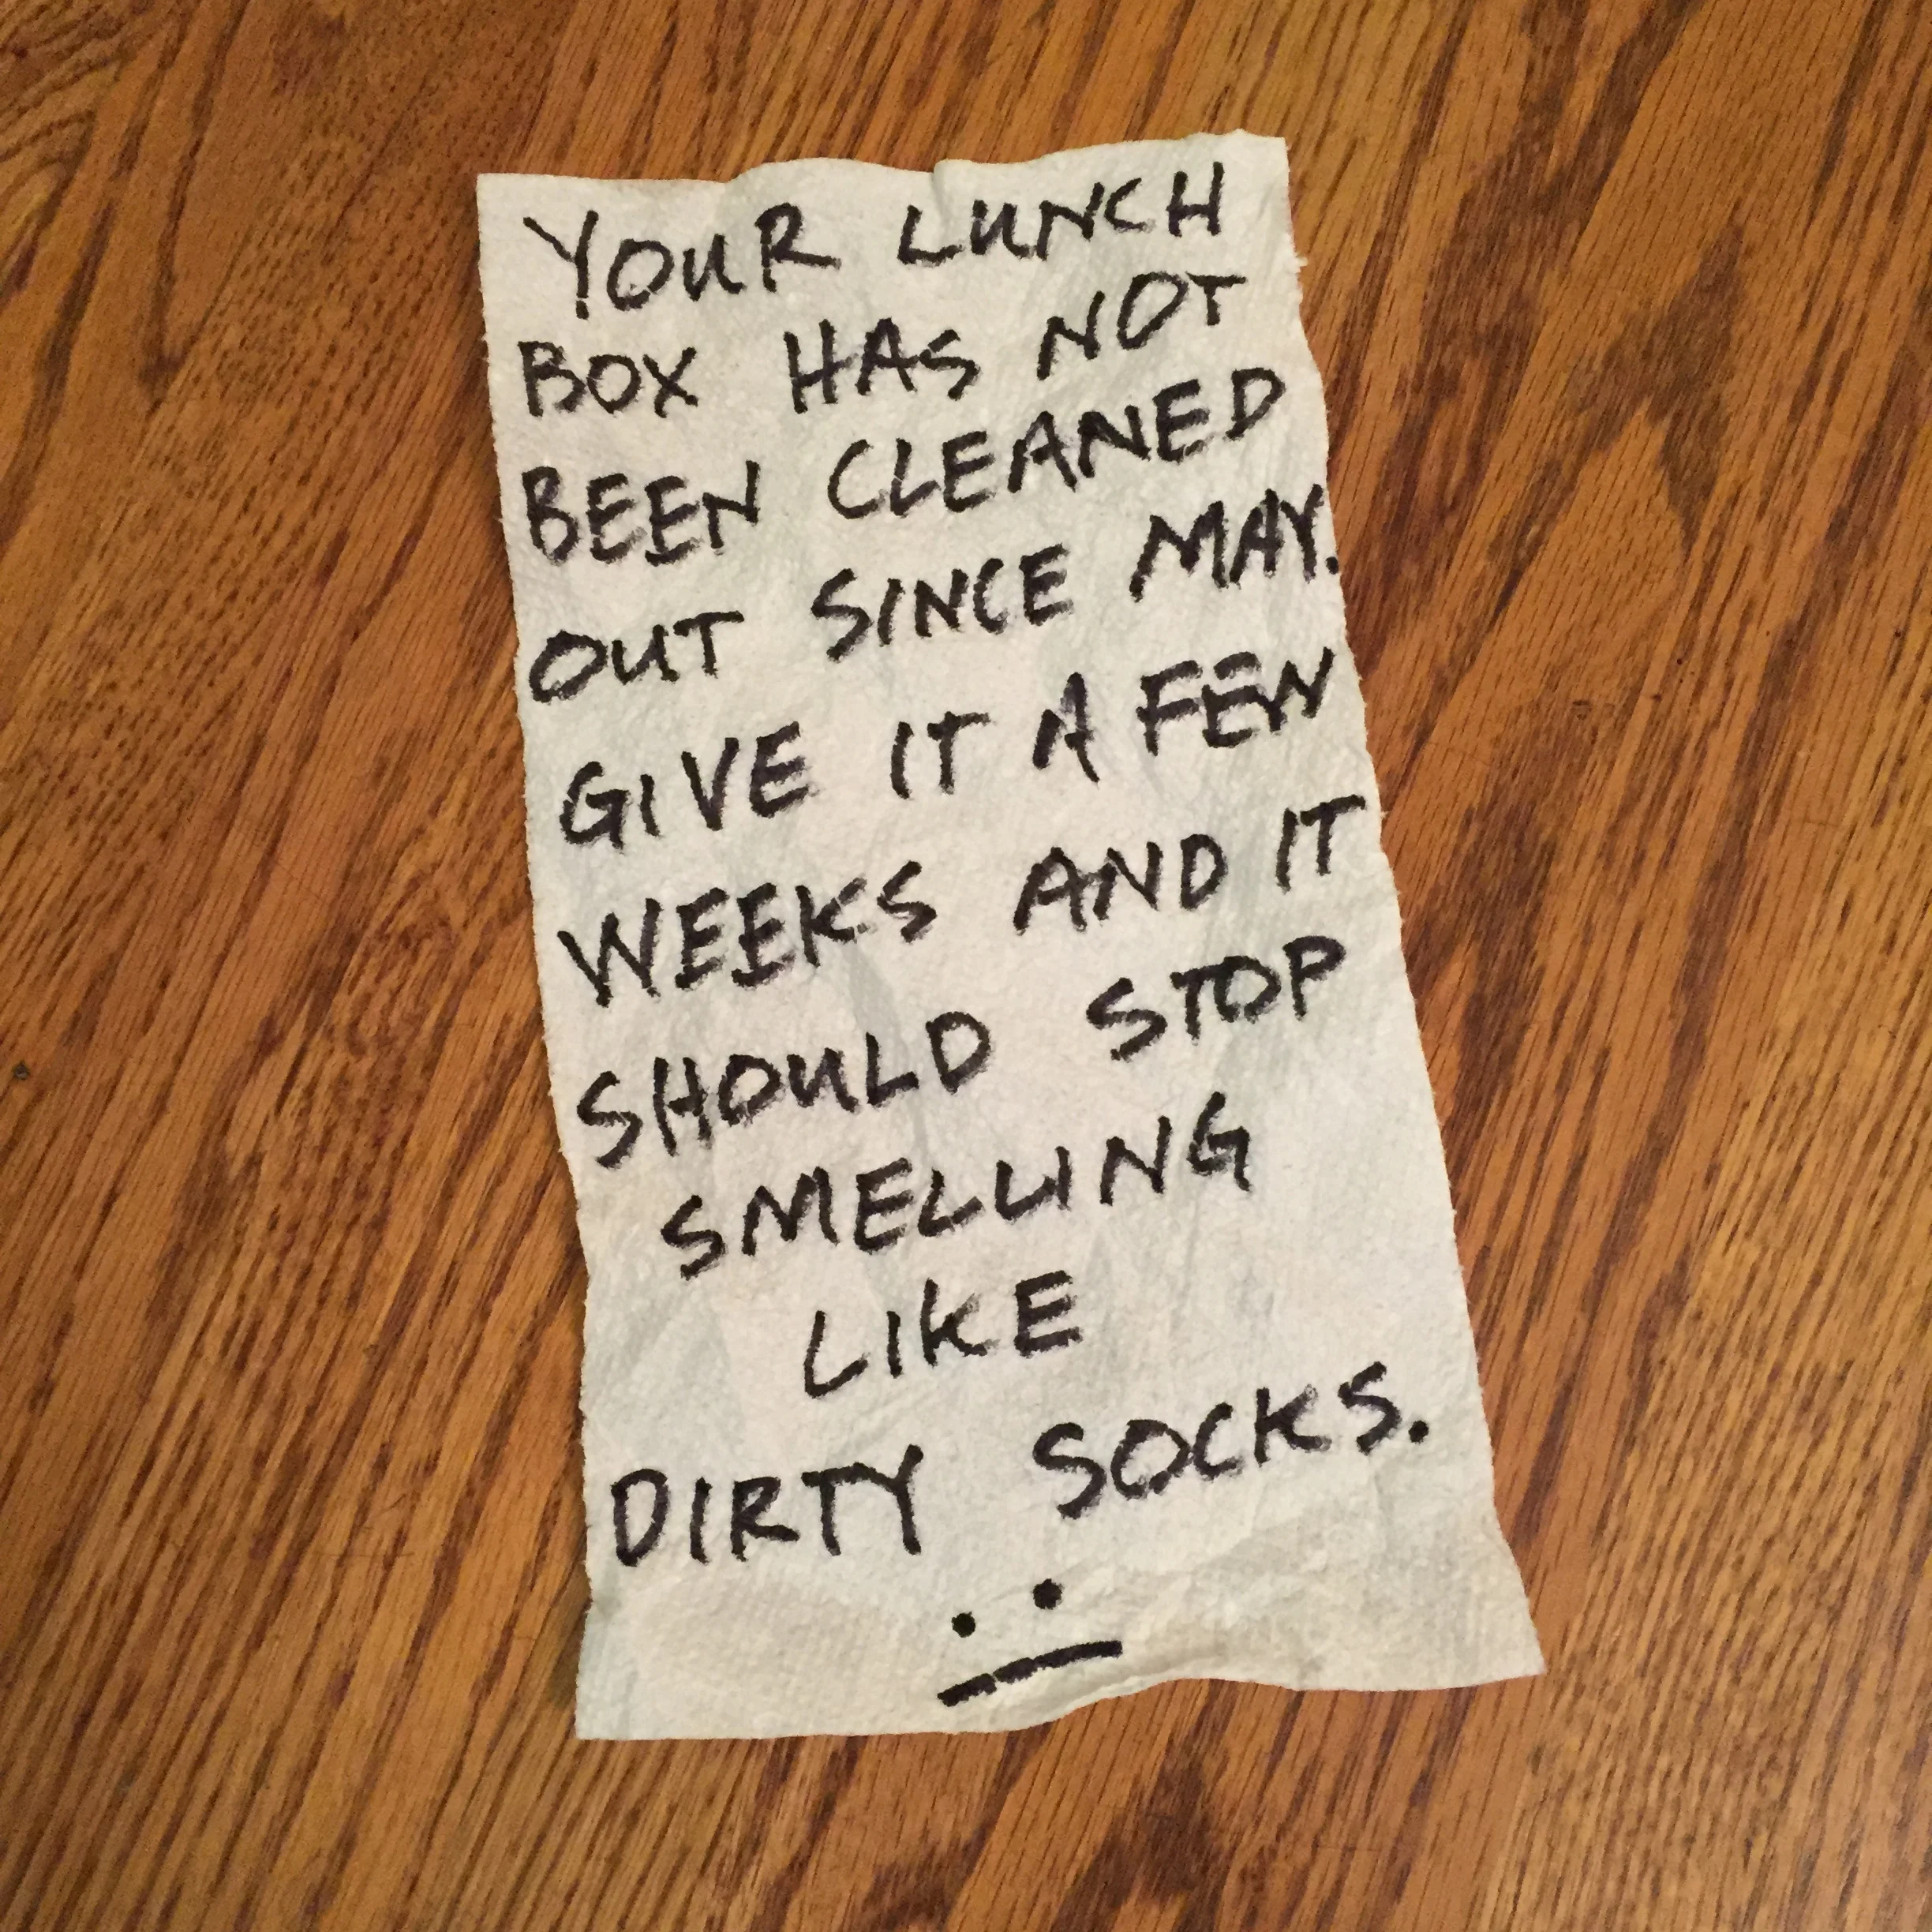 YOUR LUNCH
BOX HAS NOT
BEEN CLEANED
OUT SINCE MAY.
GIVE IT A FEW
WEEKS AND IT
SHOULD STOP
SMELLING
LIKE
DIRTY SOCKS.